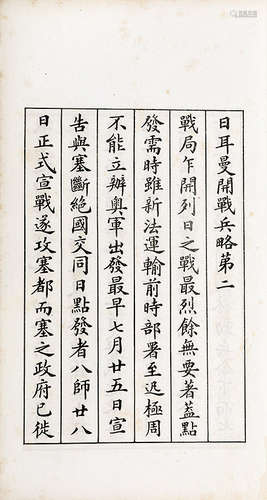 日耳曼開戰兵略第二
戰局乍開列日之戰最烈餘無要著蓋點
發需時雖新法運輸前時部署至迅極周
不能立辦奧軍出發最早七月廿五日宣
告與塞斷絕國交同日點發者八師廿八
日正式宣戰遂攻塞都而塞之政府已徙